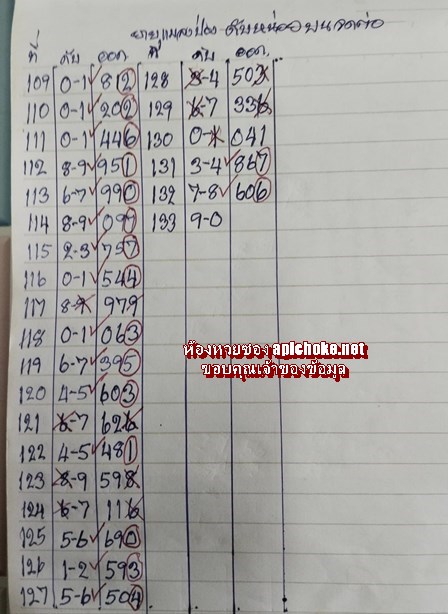 นายแมลงป่อง ดับหน่วยบนงวดต่อ
ที่ ดับ ออก ที่ ดับ ออก
109 0-1 ✓ 812 128 8-4 503
110 0-1 ✓ 202 129 6-7 336
111 0-1 ✓ 446 130 0-1 041
112 8-9 ✓ 951 131 3-4 ✓ 867
113 6-7 ✓ 990 132 7-8 ✓ 606
114 8-9 ✓ 097 133 9-0
115 2-3 ✓ 757
116 0-1 ✓ 544
117 8-9 979
118 0-1 ✓ 063
119 6-7 ✓ 395
120 4-5 ✓ 603
121 6-7 626
122 4-5 ✓ 481
123 8-9 598
124 6-7 116
125 5-6 ✓ 690
126 1-2 ✓ 593
127 5-6 ✓ 504
ห้องหวยซอง apichoke.net
ขอบคุณเจ้าของข้อมูล